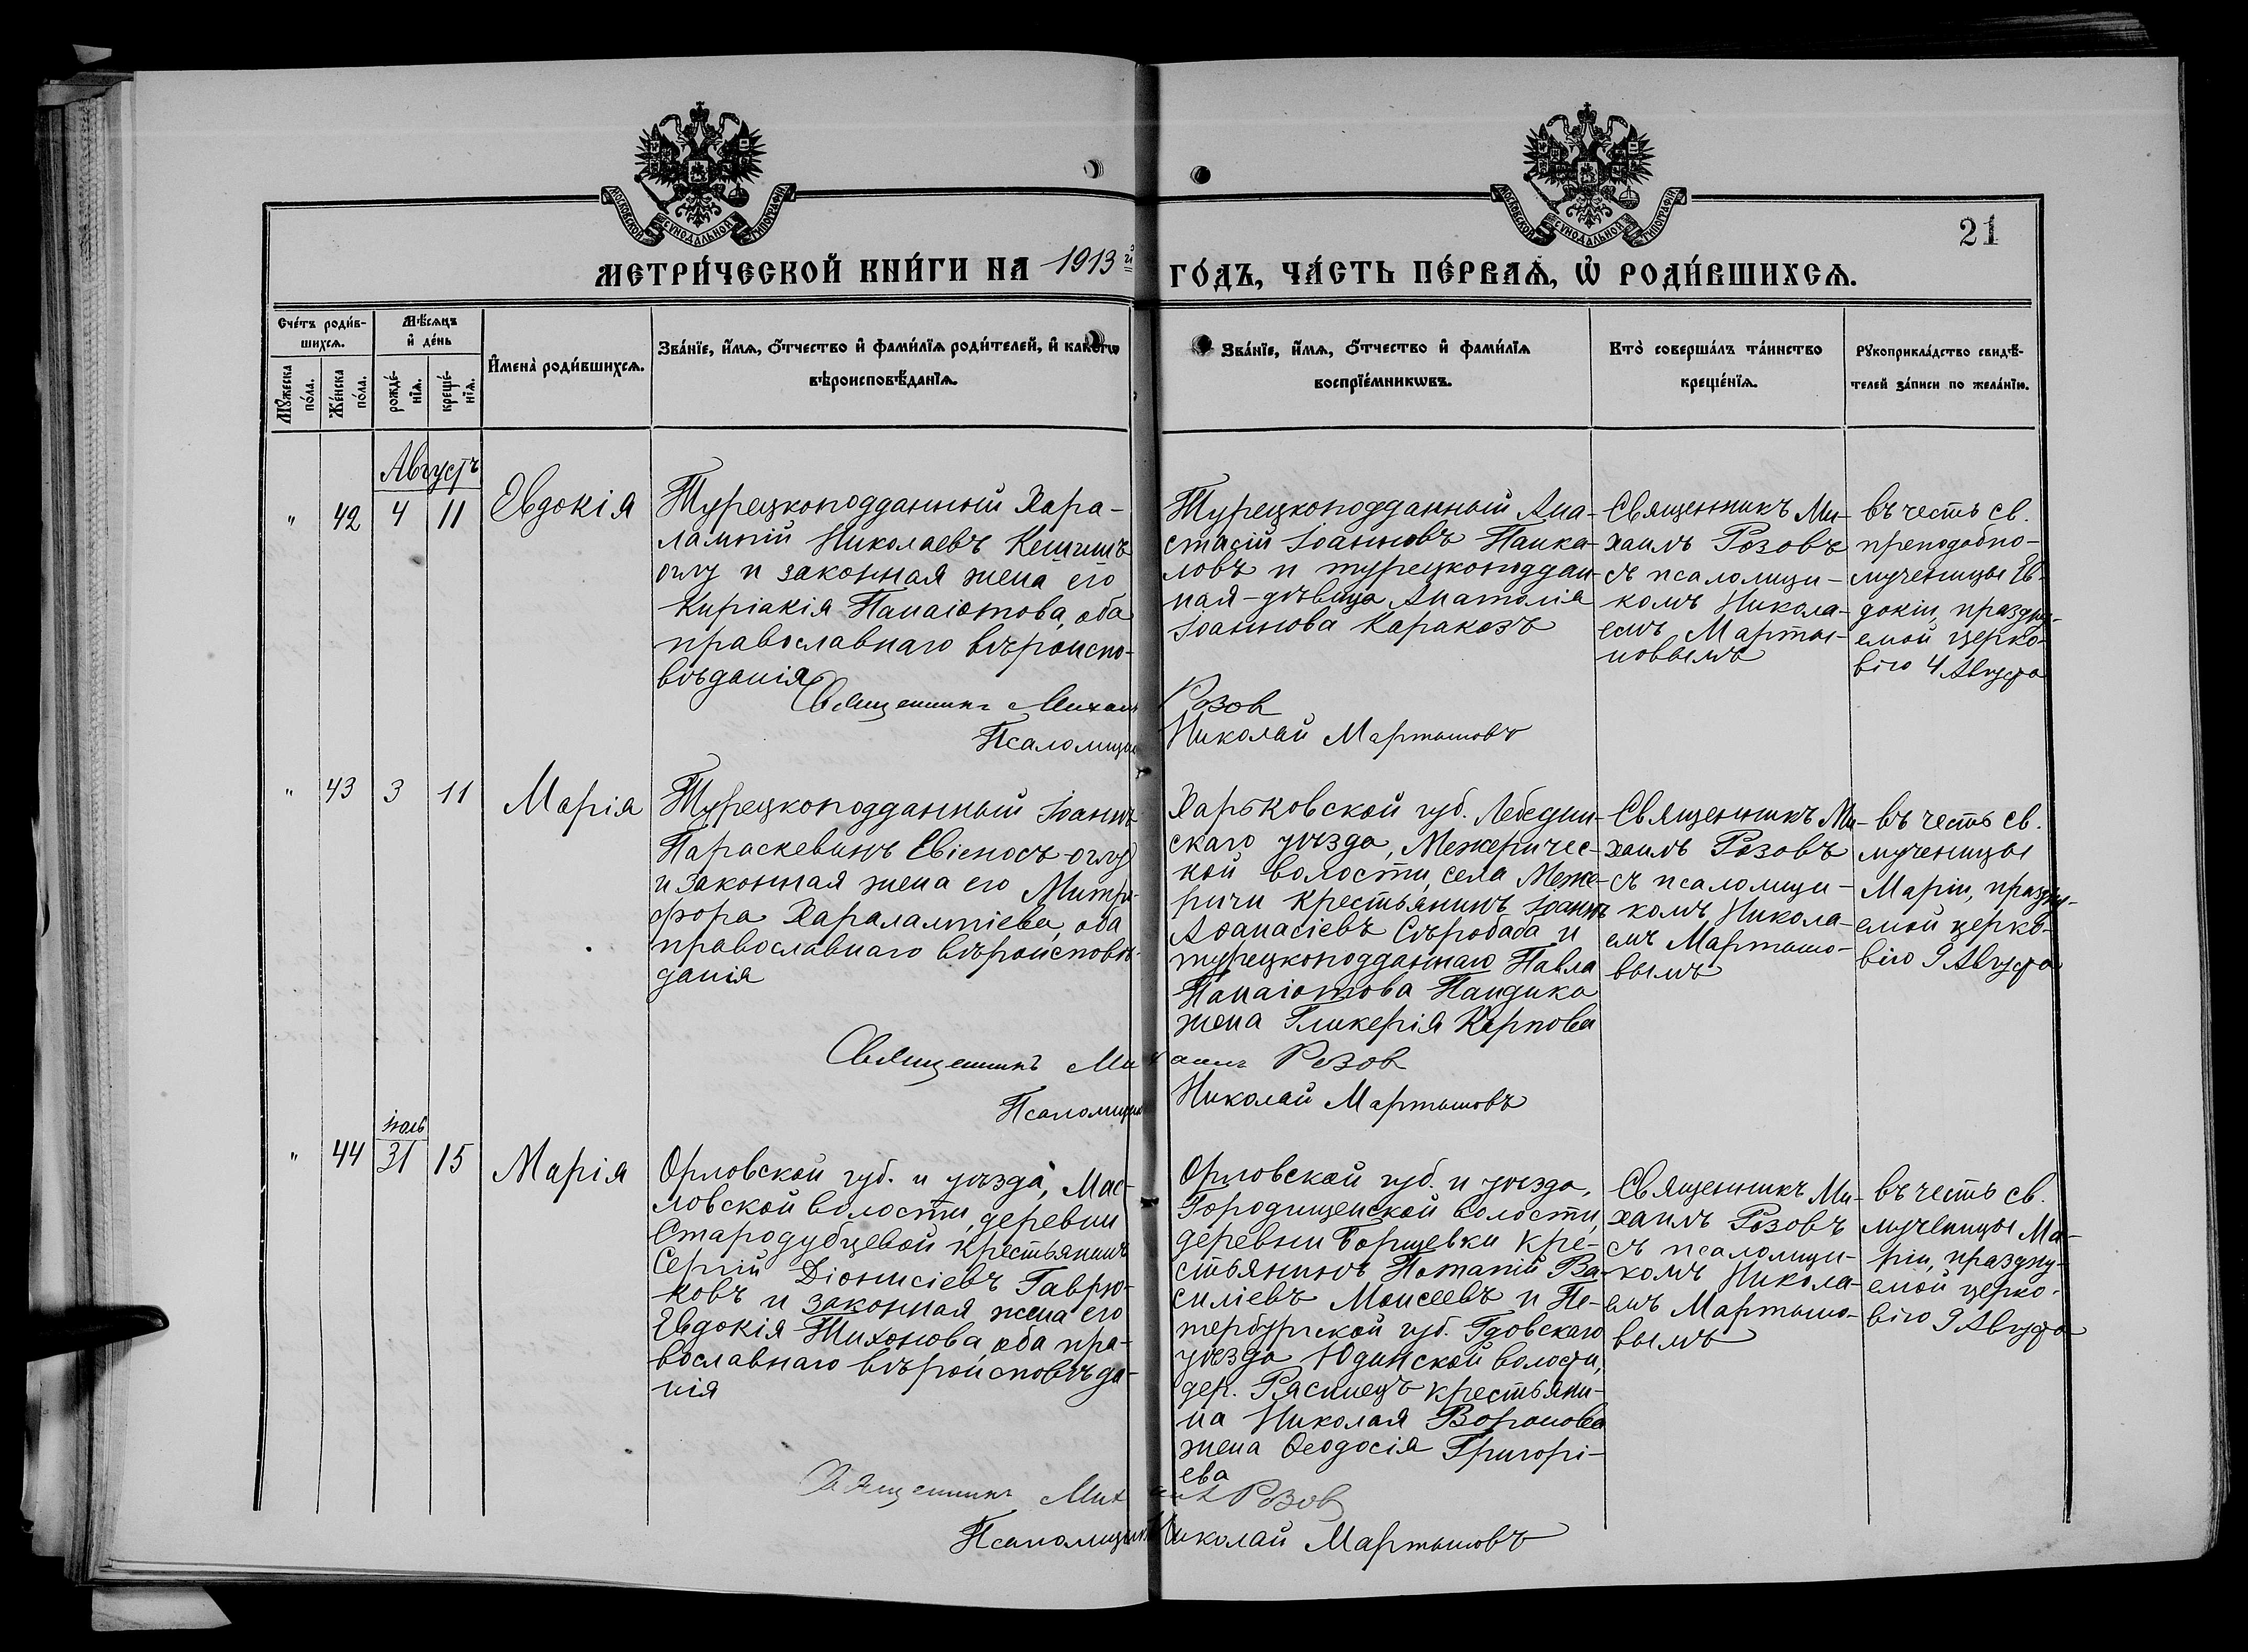 МОСКОВСКОЙ СѴНОДАЛЬНОЙ ТИПОГРАФІИ
МОСКОВСКОЙ СѴНОДАЛЬНОЙ ТИПОГРАФІИ
21
МЕТРИ́ЧЕСКОЙ КНИ́ГИ НА 1913й ГО́ДЪ, ЧА́СТЬ ПЕ́РВАѦ, Ѡ РОДИ́ВШИХСѦ.
Сче́тъ роди́в-
шихсѧ.
Мꙋжеска по́ла.
Же́нска по́ла.
Мѣ́сѧцъ и де́нь
рожде́-
нїѧ.
креще́-
нїѧ.
И҆мена̀ роди́вшихсѧ.
Зва́нїе, и҆́мѧ, ѻ҆́тчество и҆ фами́лїѧ роди́телей, и҆ како́гѡ
вѣроисповѣ́данїѧ.
Зва́нїе, и҆́мѧ, ѻ҆́тчество и҆ фами́лїѧ
воспрїе́мникѡвъ.
Кто̀ соверша́лъ та́инство
креще́нїѧ.
Рꙋкоприкла́дство свидѣ́-
телей за́писи по жела́нїю.
Августъ
" 42 4 11 Евдокія
Турецкоподданный Хара-
лампій Николаевъ Кешишъ
оглу и законная жена его
Киріакія Панаіотова, оба
православнаго вѣроиспо-
вѣданія
Турецкоподданный Ана-
стасій Іоанновъ Панка-
ловъ и турецкоподдан-
ная-дѣвица Анатолія
Іоаннова Караказъ
Священникъ Ми-
хаилъ Розовъ
съ псаломщи-
комъ Никола-
емъ Марты-
новымъ
въ честь св.
преподобно-
мученицы Ев-
докіи, праздну-
емой церко-
вію 4 Августа
Священникъ Михаилъ Розов
Псаломщикъ Николай Мартыновъ
" 43 3 11 Марія
Турецкоподданный Іоаннъ
Параскевинъ -оглу
и законная жена его Митро-
фора Харалампіева, оба
православнаго вѣроисповѣ-
данія
Харьковской губ. Лебедин-
скаго уѣзда, Межеричес-
кой волости, села Меже-
ричи крестьянинъ Іоаннъ
Аѳанасіевъ Сѣробаба и
турецкоподданнаго Павла
Панаіотова Пандика
жена Гликерія Карпова
Священникъ Ми-
хаилъ Розовъ
съ псаломщи-
комъ Никола-
емъ Мартыно-
вымъ
въ честь св.
мученицы
Маріи, праздну-
емой церко-
вію 9 Августа
Священникъ Михаилъ Розов
Псаломщикъ Николай Мартыновъ
Іюль
" 44 31 15 Марія
Орловской губ. и уѣзда, Мас-
ловской волости, деревни
Стародубцевой крестьянинъ
Сергій Діонисіевъ Гаврю-
ковъ и законная жена его
Евдокія Тихонова, оба пра-
вославнаго вѣроисповѣда-
нія
Орловской губ. и уѣзда,
Городищенской волости,
деревни Борщевки кре-
стьянинъ Потапій Ва-
силіевъ Моисеевъ и Пе-
тербургской губ. Гдовскаго
уѣзда Юдинской волости,
дер. Рясинецъ крестьяни-
на Николая Воронова
жена Ѳеодосія Григорі-
ева
Священникъ Ми-
хаилъ Розовъ
съ псаломщи-
комъ Никола-
емъ Мартыно-
вымъ
въ честь св.
мученицы Ма-
ріи, праздну-
емой церко-
вію 9 Августа
Священникъ Михаилъ Розов
Псаломщикъ Николай Мартыновъ